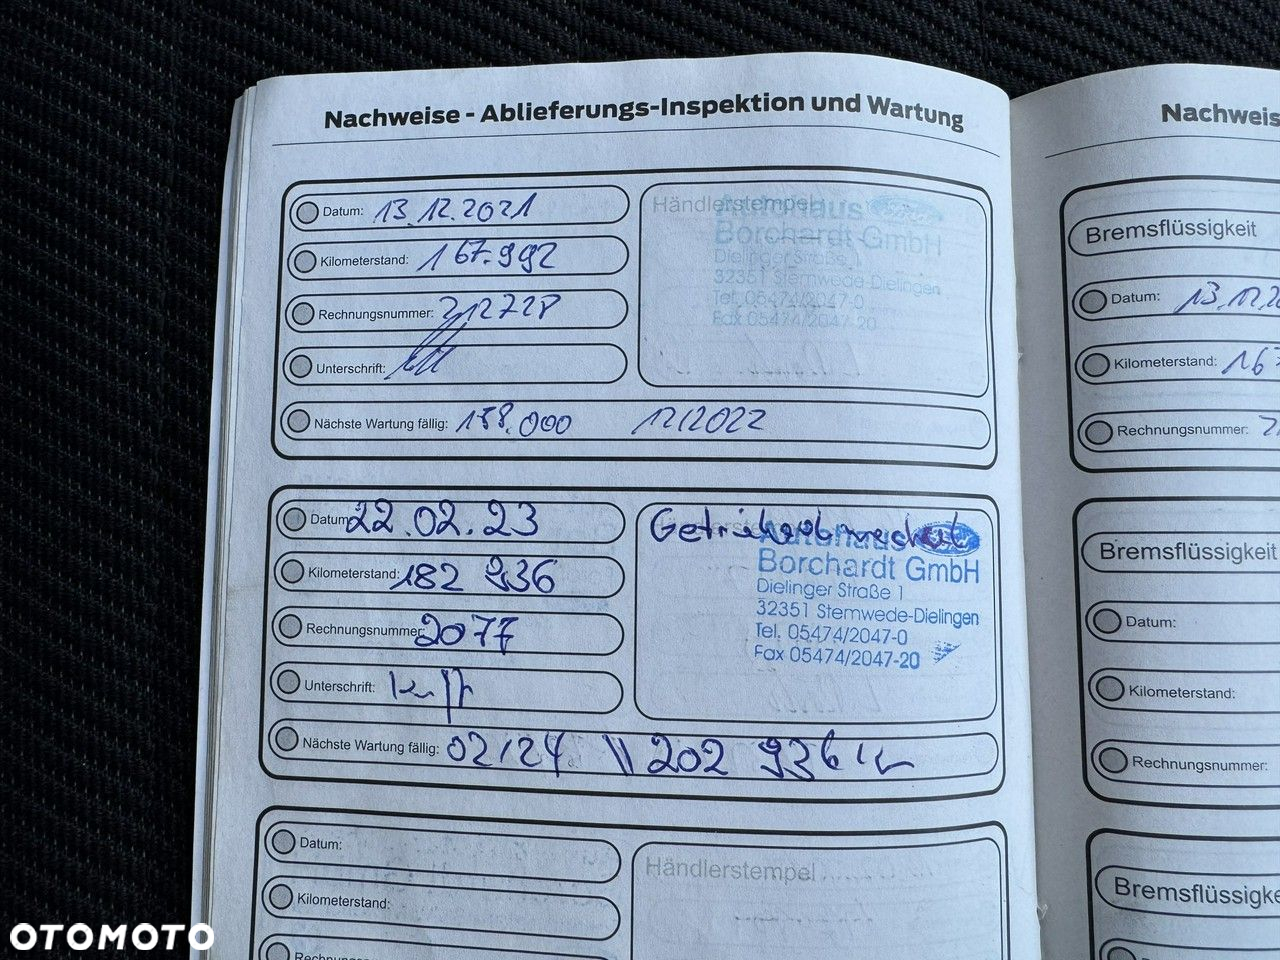 Nachweise - Ablieferungs-Inspektion und Wartung
Datum: 13.12.2021
Kilometerstand: 167.992
Rechnungsnummer: 212728
Unterschrift:
Nächste Wartung fällig: 188.000 12/2022
Händlerstempel
Autohaus
Borchardt GmbH
Dielinger Straße 1
32351 Stemwede-Dielingen
Tel. 05474/2047-0
Fax 05474/2047-20
Datum: 22.02.23
Kilometerstand: 182 936
Rechnungsnummer: 2077
Unterschrift:
Nächste Wartung fällig: 02/24 \\ 202 936
Autohaus
Borchardt GmbH
Dielinger Straße 1
32351 Stemwede-Dielingen
Tel. 05474/2047-0
Fax 05474/2047-20
Datum:
Kilometerstand:
Händlerstempel
Nachweis
Bremsflüssigkeit
Datum: 13.12.2
Kilometerstand: 167
Rechnungsnummer:
Bremsflüssigkeit
Datum:
Kilometerstand:
Rechnungsnummer:
Bremsflüssigke
OTOMOTO